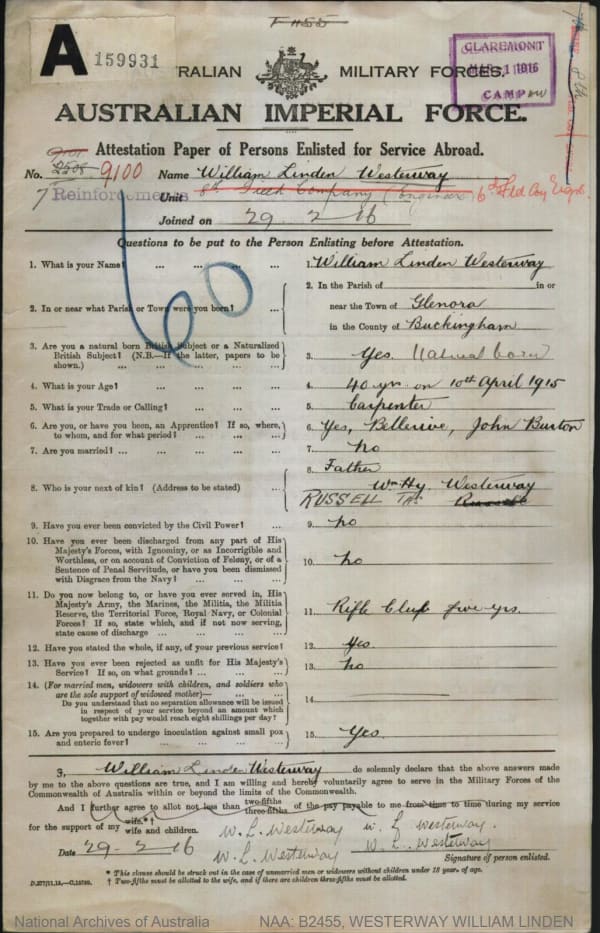 A 159931
CLAREMONT
MAR 1 1916
CAMP
AUSTRALIAN MILITARY FORCES.
AUSTRALIAN IMPERIAL FORCE.
Attestation Paper of Persons Enlisted for Service Abroad.
No. 9100 Name William Linden Westerway
7 Reinforcements Unit 8th Field Company (Engineers) 6th Fld Coy Engrs
Joined on 29-2-16
60
Questions to be put to the Person Enlisting before Attestation.
1. What is your Name? ... ... ... ... 1. William Linden Westerway
2. In or near what Parish or Town were you born? ... 2. In the Parish of in or
near the Town of Glenora
in the County of Buckingham
3. Are you a natural born British Subject or a Naturalized
British Subject? (N.B.—If the latter, papers to be
shown.) ... ... ... ... 3. Yes. Natural born
4. What is your Age? ... ... ... ... 4. 40 yrs on 10th April 1915
5. What is your Trade or Calling? ... ... ... 5. Carpenter
6. Are you, or have you been, an Apprentice? If so, where,
to whom, and for what period? ... ... ... 6. Yes, Bellerive, John Burton
7. Are you married? ... ... ... ... 7. No
8. Who is your next of kin? (Address to be stated) ... 8. Father
Wm Hy. Westerway
RUSSELL TAS Russell
9. Have you ever been convicted by the Civil Power? ... 9. No
10. Have you ever been discharged from any part of His
Majesty's Forces, with Ignominy, or as Incorrigible and
Worthless, or on account of Conviction of Felony, or of a
Sentence of Penal Servitude, or have you been dismissed
with Disgrace from the Navy? ... ... ... 10. No
11. Do you now belong to, or have you ever served in, His
Majesty's Army, the Marines, the Militia, the Militia
Reserve, the Territorial Force, Royal Navy, or Colonial
Forces? If so, state which, and if not now serving,
state cause of discharge ... ... ... ... 11. Rifle Club five yrs.
12. Have you stated the whole, if any, of your previous service? 12. Yes.
13. Have you ever been rejected as unfit for His Majesty's
Service? If so, on what grounds? ... ... ... 13. No
14. (For married men, widowers with children, and soldiers who
are the sole support of widowed mother)—
Do you understand that no separation allowance will be issued
in respect of your service beyond an amount which
together with pay would reach eight shillings per day? 14.
15. Are you prepared to undergo inoculation against small pox
and enteric fever? ... ... ... ... 15. Yes.
I, William Linden Westerway do solemnly declare that the above answers made
by me to the above questions are true, and I am willing and hereby voluntarily agree to serve in the Military Forces of the
Commonwealth of Australia within or beyond the limits of the Commonwealth.
And I further agree to allot not less than two-fifths three-fifths of the pay payable to me from time to time during my service
for the support of my wife.*† wife and children.
W. L. Westerway W. L. Westerway.
Date 29-2-16 W. L. Westerway W. L. Westerway
Signature of person enlisted.
* This clause should be struck out in the case of unmarried men or widowers without children under 18 year of age.
† Two-fifths must be allotted to the wife, and if there are children three-fifths must be allotted.
National Archives of Australia NAA: B2455, WESTERWAY WILLIAM LINDEN